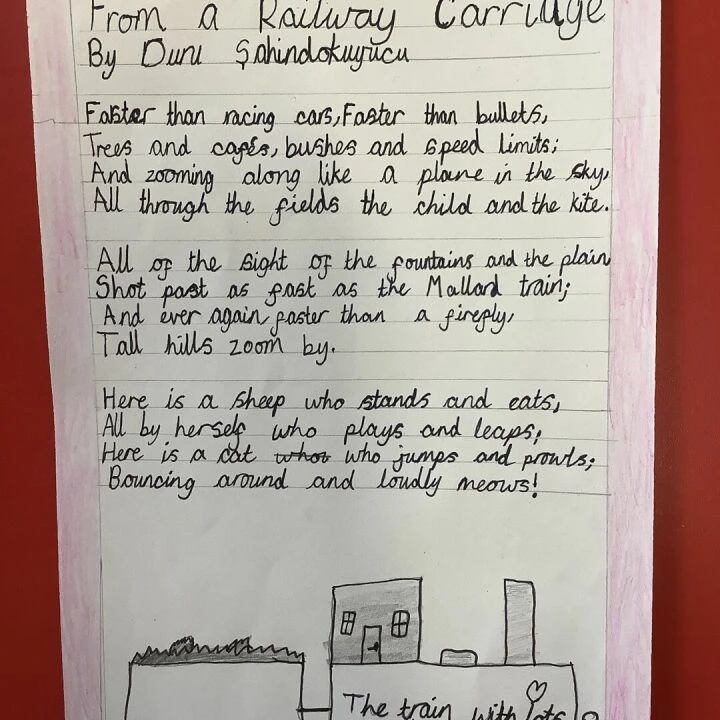 From a Railway Carriage
By Duru Şahindokuyucu
Faster than racing cars, Faster than bullets,
Trees and cafés, bushes and speed limits;
And zooming along like a plane in the sky,
All through the fields the child and the kite.
All of the sight of the fountains and the plain
Shot past as fast as the Mallard train;
And ever again, faster than a firefly,
Tall hills zoom by.
Here is a sheep who stands and eats,
All by herself who plays and leaps;
Here is a cat who jumps and prowls;
Bouncing around and loudly meows!
The train with